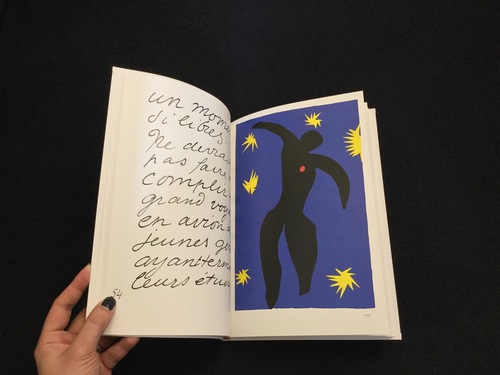 un mome
si libres
Ne devrai
pas faire
complir
grand voy
en avion
jeunes ge
ayant term
leurs étu
54